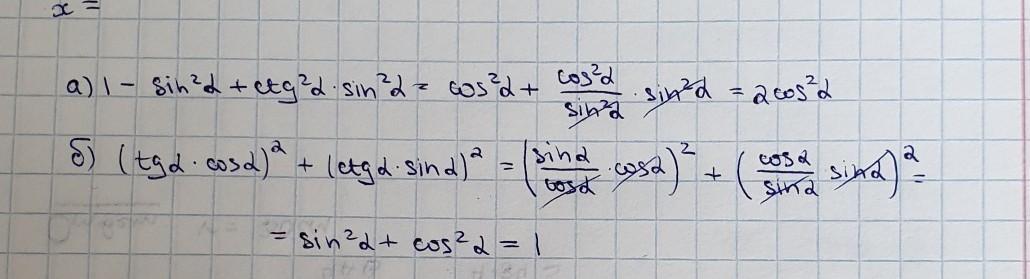 x =
а) 1 - sin²α + ctg²α · sin²α = cos²α + cos²α/sin²α · sin²α = 2cos²α
б) (tgα · cosα)² + (ctgα · sinα)² = (sinα/cosα · cosα)² + (cosα/sinα sinα)² =
= sin²α + cos²α = 1